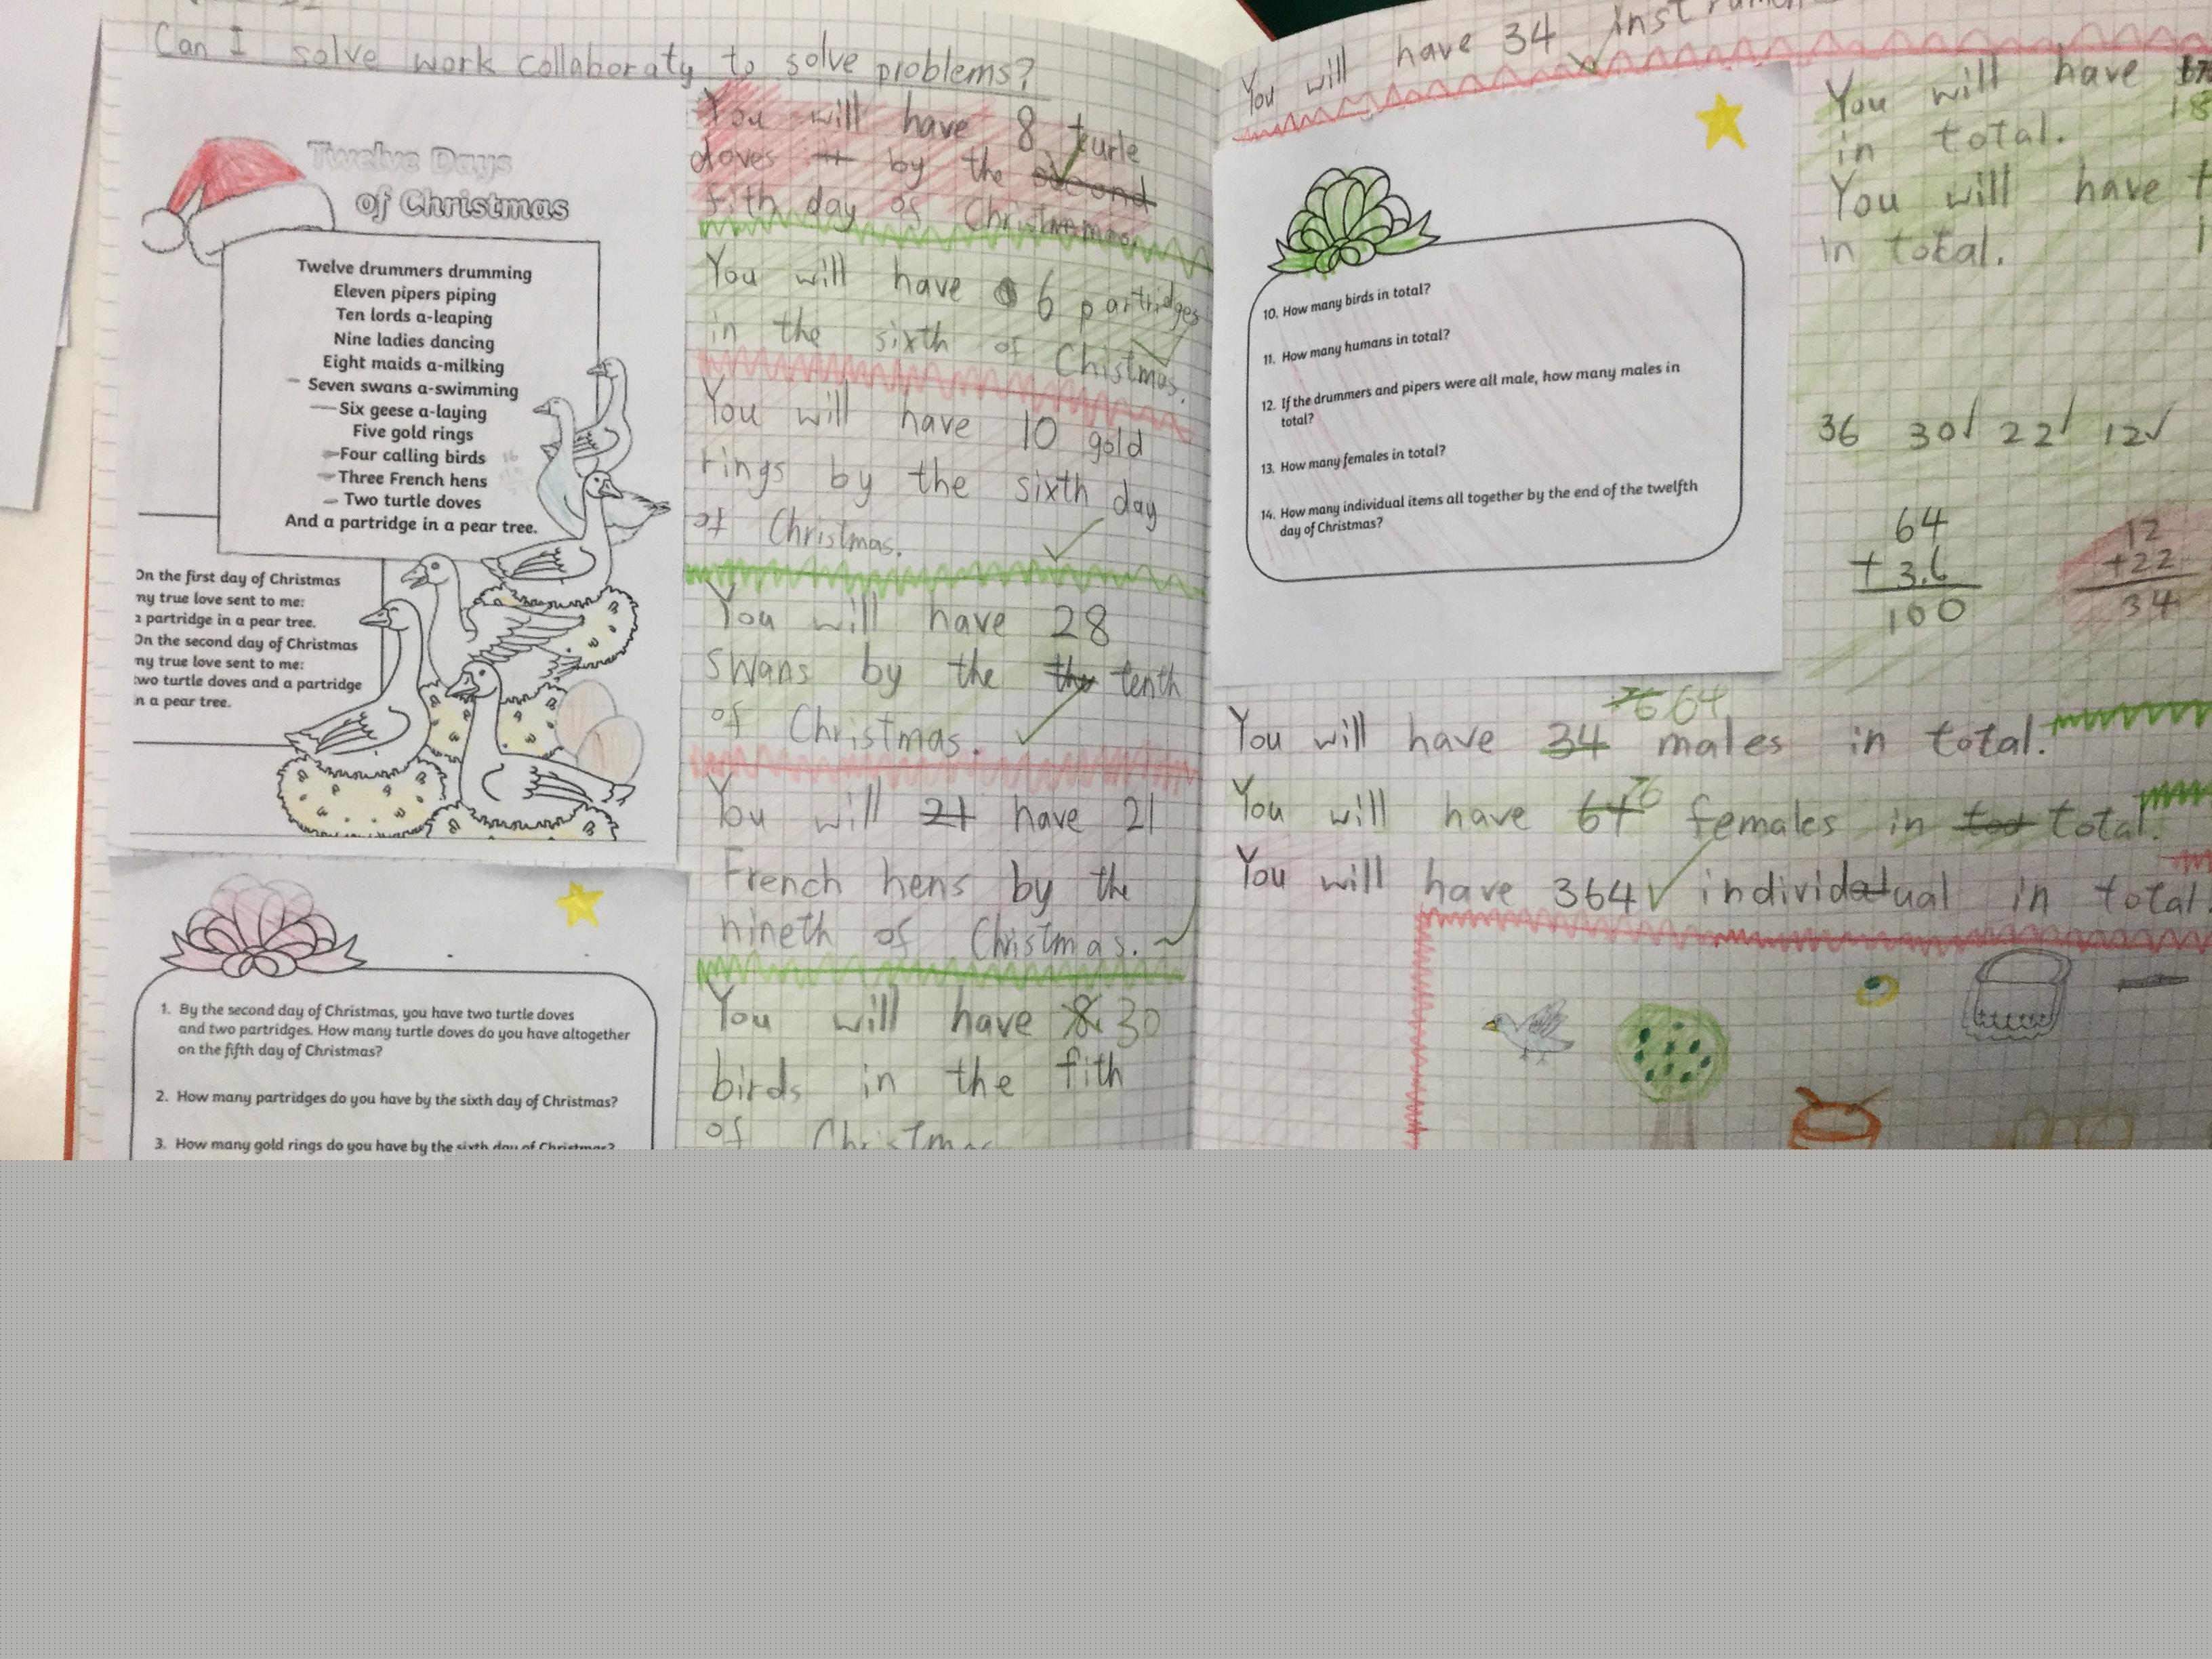 Can I solve work collaboraty to solve problems?
Twelve Days
of Christmas
Twelve drummers drumming
Eleven pipers piping
Ten lords a-leaping
Nine ladies dancing
Eight maids a-milking
Seven swans a-swimming
Six geese a-laying
Five gold rings
Four calling birds
Three French hens
Two turtle doves
And a partridge in a pear tree.
On the first day of Christmas
my true love sent to me:
a partridge in a pear tree.
On the second day of Christmas
my true love sent to me:
two turtle doves and a partridge
in a pear tree.
1. By the second day of Christmas, you have two turtle doves
and two partridges. How many turtle doves do you have altogether
on the fifth day of Christmas?
2. How many partridges do you have by the sixth day of Christmas?
3. How many gold rings do you have by the sixth day of Christmas?
You will have 8 turle
doves by the second
fith day of
You will have 6 partridges
in the sixth of Chistmas.
You will have 10 gold
rings by the sixth day
of Christmas.
You will have 28
swans by the the tenth
of Christmas.
You will 21 have 21
French hens by the
nineth of Christmas.
You will have 8 30
birds in the fith
of Christmas
You will have 34
10. How many birds in total?
11. How many humans in total?
12. If the drummers and pipers were all male, how many males in
total?
13. How many females in total?
14. How many individual items all together by the end of the twelfth
day of Christmas?
You will have
in total.
You will have
in total.
36 30 22 12
64
+ 36
100
12
+22
34
64
You will have 34 males in total.
76
You will have 64 females in total.
You will have 364 individual in total.